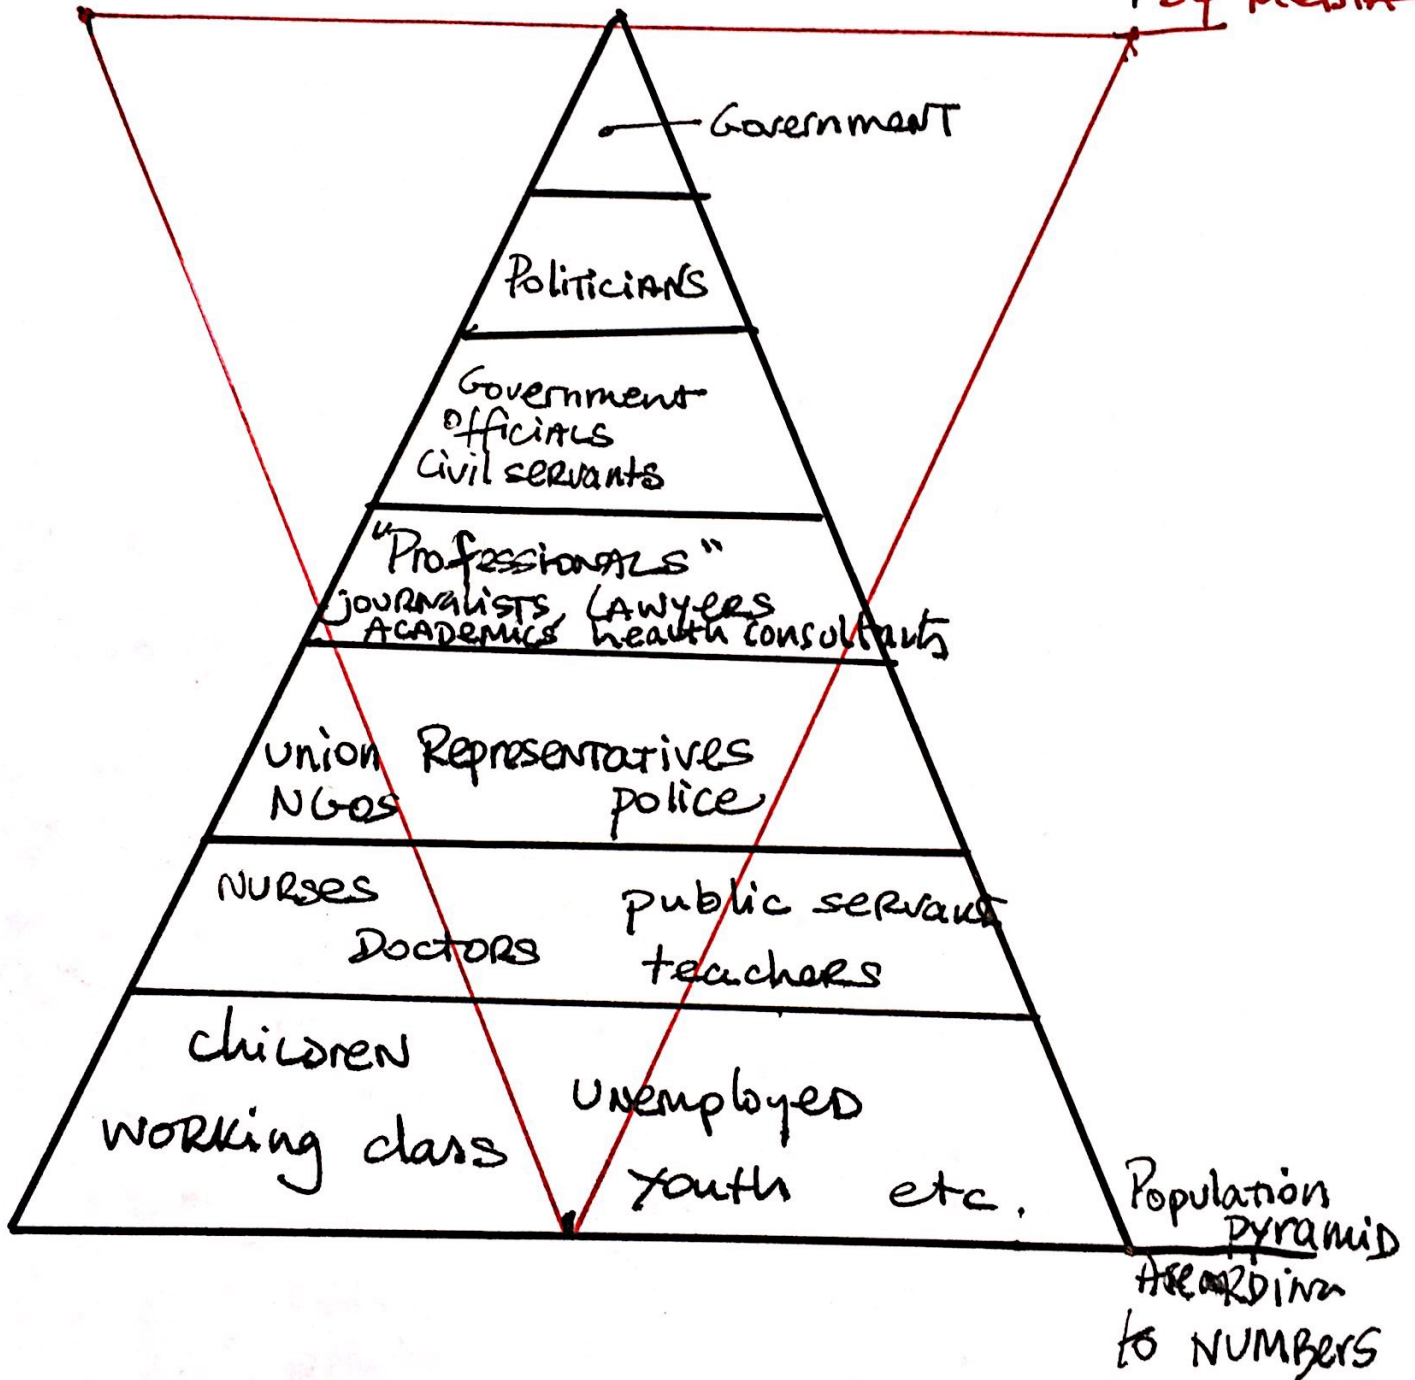 by MEDIA
Government
Politicians
Government
Officials
Civil servants
"Professionals"
journalists, Lawyers
Academics health consultants
Union Representatives
NGOs police
Nurses public servant
Doctors teachers
Children
Unemployed
Working class
Youth etc.
Population
pyramid
According
to Numbers